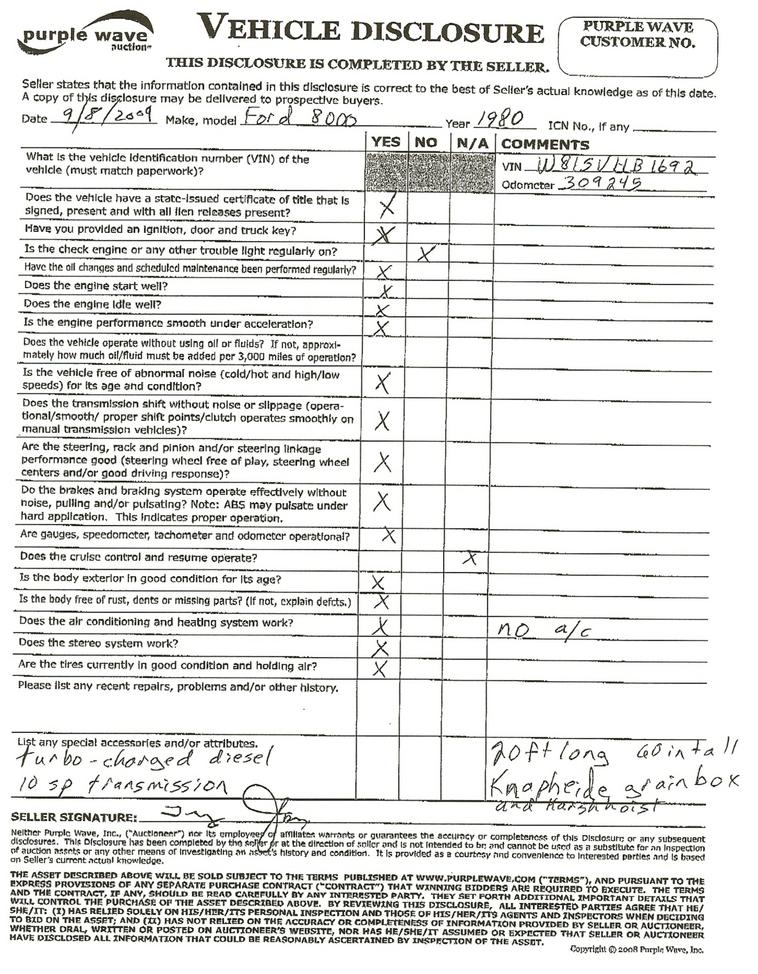 purple wave
auction℠
VEHICLE DISCLOSURE
THIS DISCLOSURE IS COMPLETED BY THE SELLER.
PURPLE WAVE
CUSTOMER NO.
Seller states that the information contained in this disclosure is correct to the best of Seller's actual knowledge as of this date.
A copy of this disclosure may be delivered to prospective buyers.
Date 9/8/2009 Make, model Ford 8000 Year 1980 ICN No., if any
YES NO N/A COMMENTS
What is the vehicle identification number (VIN) of the
vehicle (must match paperwork)?
VIN W815VHB1692
Odometer 309245
Does the vehicle have a state-issued certificate of title that is
signed, present and with all lien releases present? X
Have you provided an ignition, door and truck key? X
Is the check engine or any other trouble light regularly on? X
Have the oil changes and scheduled maintenance been performed regularly? X
Does the engine start well? X
Does the engine idle well? X
Is the engine performance smooth under acceleration? X
Does the vehicle operate without using oil or fluids? If not, approxi-
mately how much oil/fluid must be added per 3,000 miles of operation?
Is the vehicle free of abnormal noise (cold/hot and high/low
speeds) for its age and condition? X
Does the transmission shift without noise or slippage (opera-
tional/smooth/ proper shift points/clutch operates smoothly on
manual transmission vehicles)? X
Are the steering, rack and pinion and/or steering linkage
performance good (steering wheel free of play, steering wheel
centers and/or good driving response)? X
Do the brakes and braking system operate effectively without
noise, pulling and/or pulsating? Note: ABS may pulsate under
hard application. This indicates proper operation. X
Are gauges, speedometer, tachometer and odometer operational? X
Does the cruise control and resume operate? X
Is the body exterior in good condition for its age? X
Is the body free of rust, dents or missing parts? (If not, explain defcts.) X
Does the air conditioning and heating system work? X no a/c
Does the stereo system work? X
Are the tires currently in good condition and holding air? X
Please list any recent repairs, problems and/or other history.
List any special accessories and/or attributes.
turbo-charged diesel
10 sp transmission
20ft long 60in tall
Knapheide grainbox
and Harsh hoist
SELLER SIGNATURE:
Neither Purple Wave, Inc. ("Auctioneer") nor its employees or affiliates warrants or guarantees the accuracy or completeness of this Disclosure or any subsequent
disclosures. This Disclosure has been completed by the seller or at the direction of seller and is not intended to be and cannot be used as a substitute for an inspection
of auction assets or any other means of investigating an asset's history and condition. It is provided as a courtesy and convenience to interested parties and is based
on Seller's current actual knowledge.
THE ASSET DESCRIBED ABOVE WILL BE SOLD SUBJECT TO THE TERMS PUBLISHED AT WWW.PURPLEWAVE.COM ("TERMS"), AND PURSUANT TO THE
EXPRESS PROVISIONS OF ANY SEPARATE PURCHASE CONTRACT ("CONTRACT") THAT WINNING BIDDERS ARE REQUIRED TO EXECUTE. THE TERMS
AND THE CONTRACT, IF ANY, SHOULD BE READ CAREFULLY BY ANY INTERESTED PARTY. THEY SET FORTH ADDITIONAL IMPORTANT DETAILS THAT
WILL CONTROL THE PURCHASE OF THE ASSET DESCRIBED ABOVE. BY REVIEWING THIS DISCLOSURE, ALL INTERESTED PARTIES AGREE THAT HE/
SHE/IT: (I) HAS RELIED SOLELY ON HIS/HER/ITS PERSONAL INSPECTION AND THOSE OF HIS/HER/ITS AGENTS AND INSPECTORS WHEN DECIDING
TO BID ON THE ASSET; AND (II) HAS NOT RELIED ON THE ACCURACY OR COMPLETENESS OF INFORMATION PROVIDED BY SELLER OR AUCTIONEER,
WHETHER ORAL, WRITTEN OR POSTED ON AUCTIONEER'S WEBSITE, NOR HAS HE/SHE/IT ASSUMED OR EXPECTED THAT SELLER OR AUCTIONEER
HAVE DISCLOSED ALL INFORMATION THAT COULD BE REASONABLY ASCERTAINED BY INSPECTION OF THE ASSET.
Copyright © 2008 Purple Wave, Inc.